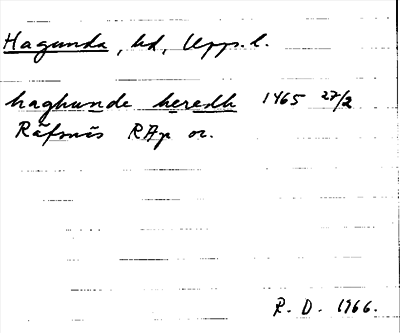 Hagunda, hd, Upps. l.
haghunde heredh 1465 27/2
Räfsnäs RAp or.
R. D. 1966.